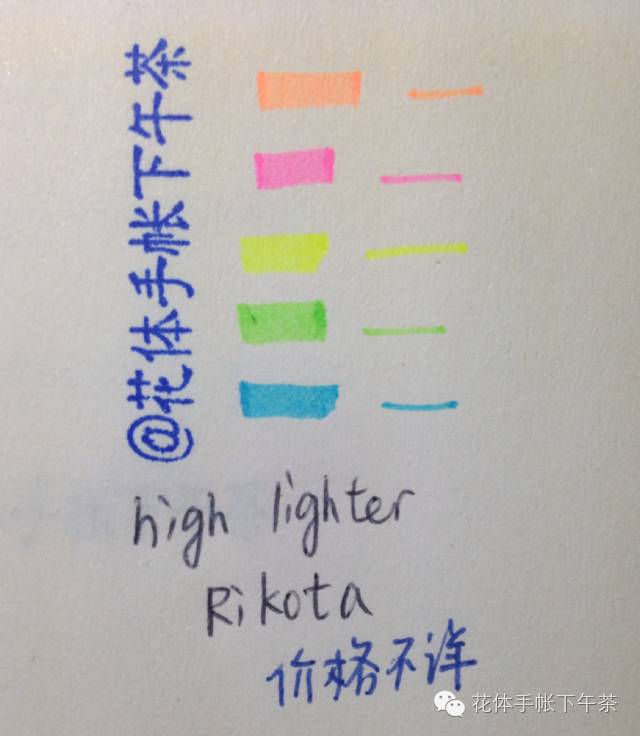 @花体手帐下午茶
high lighter
Rikota
价格不详
花体手帐下午茶